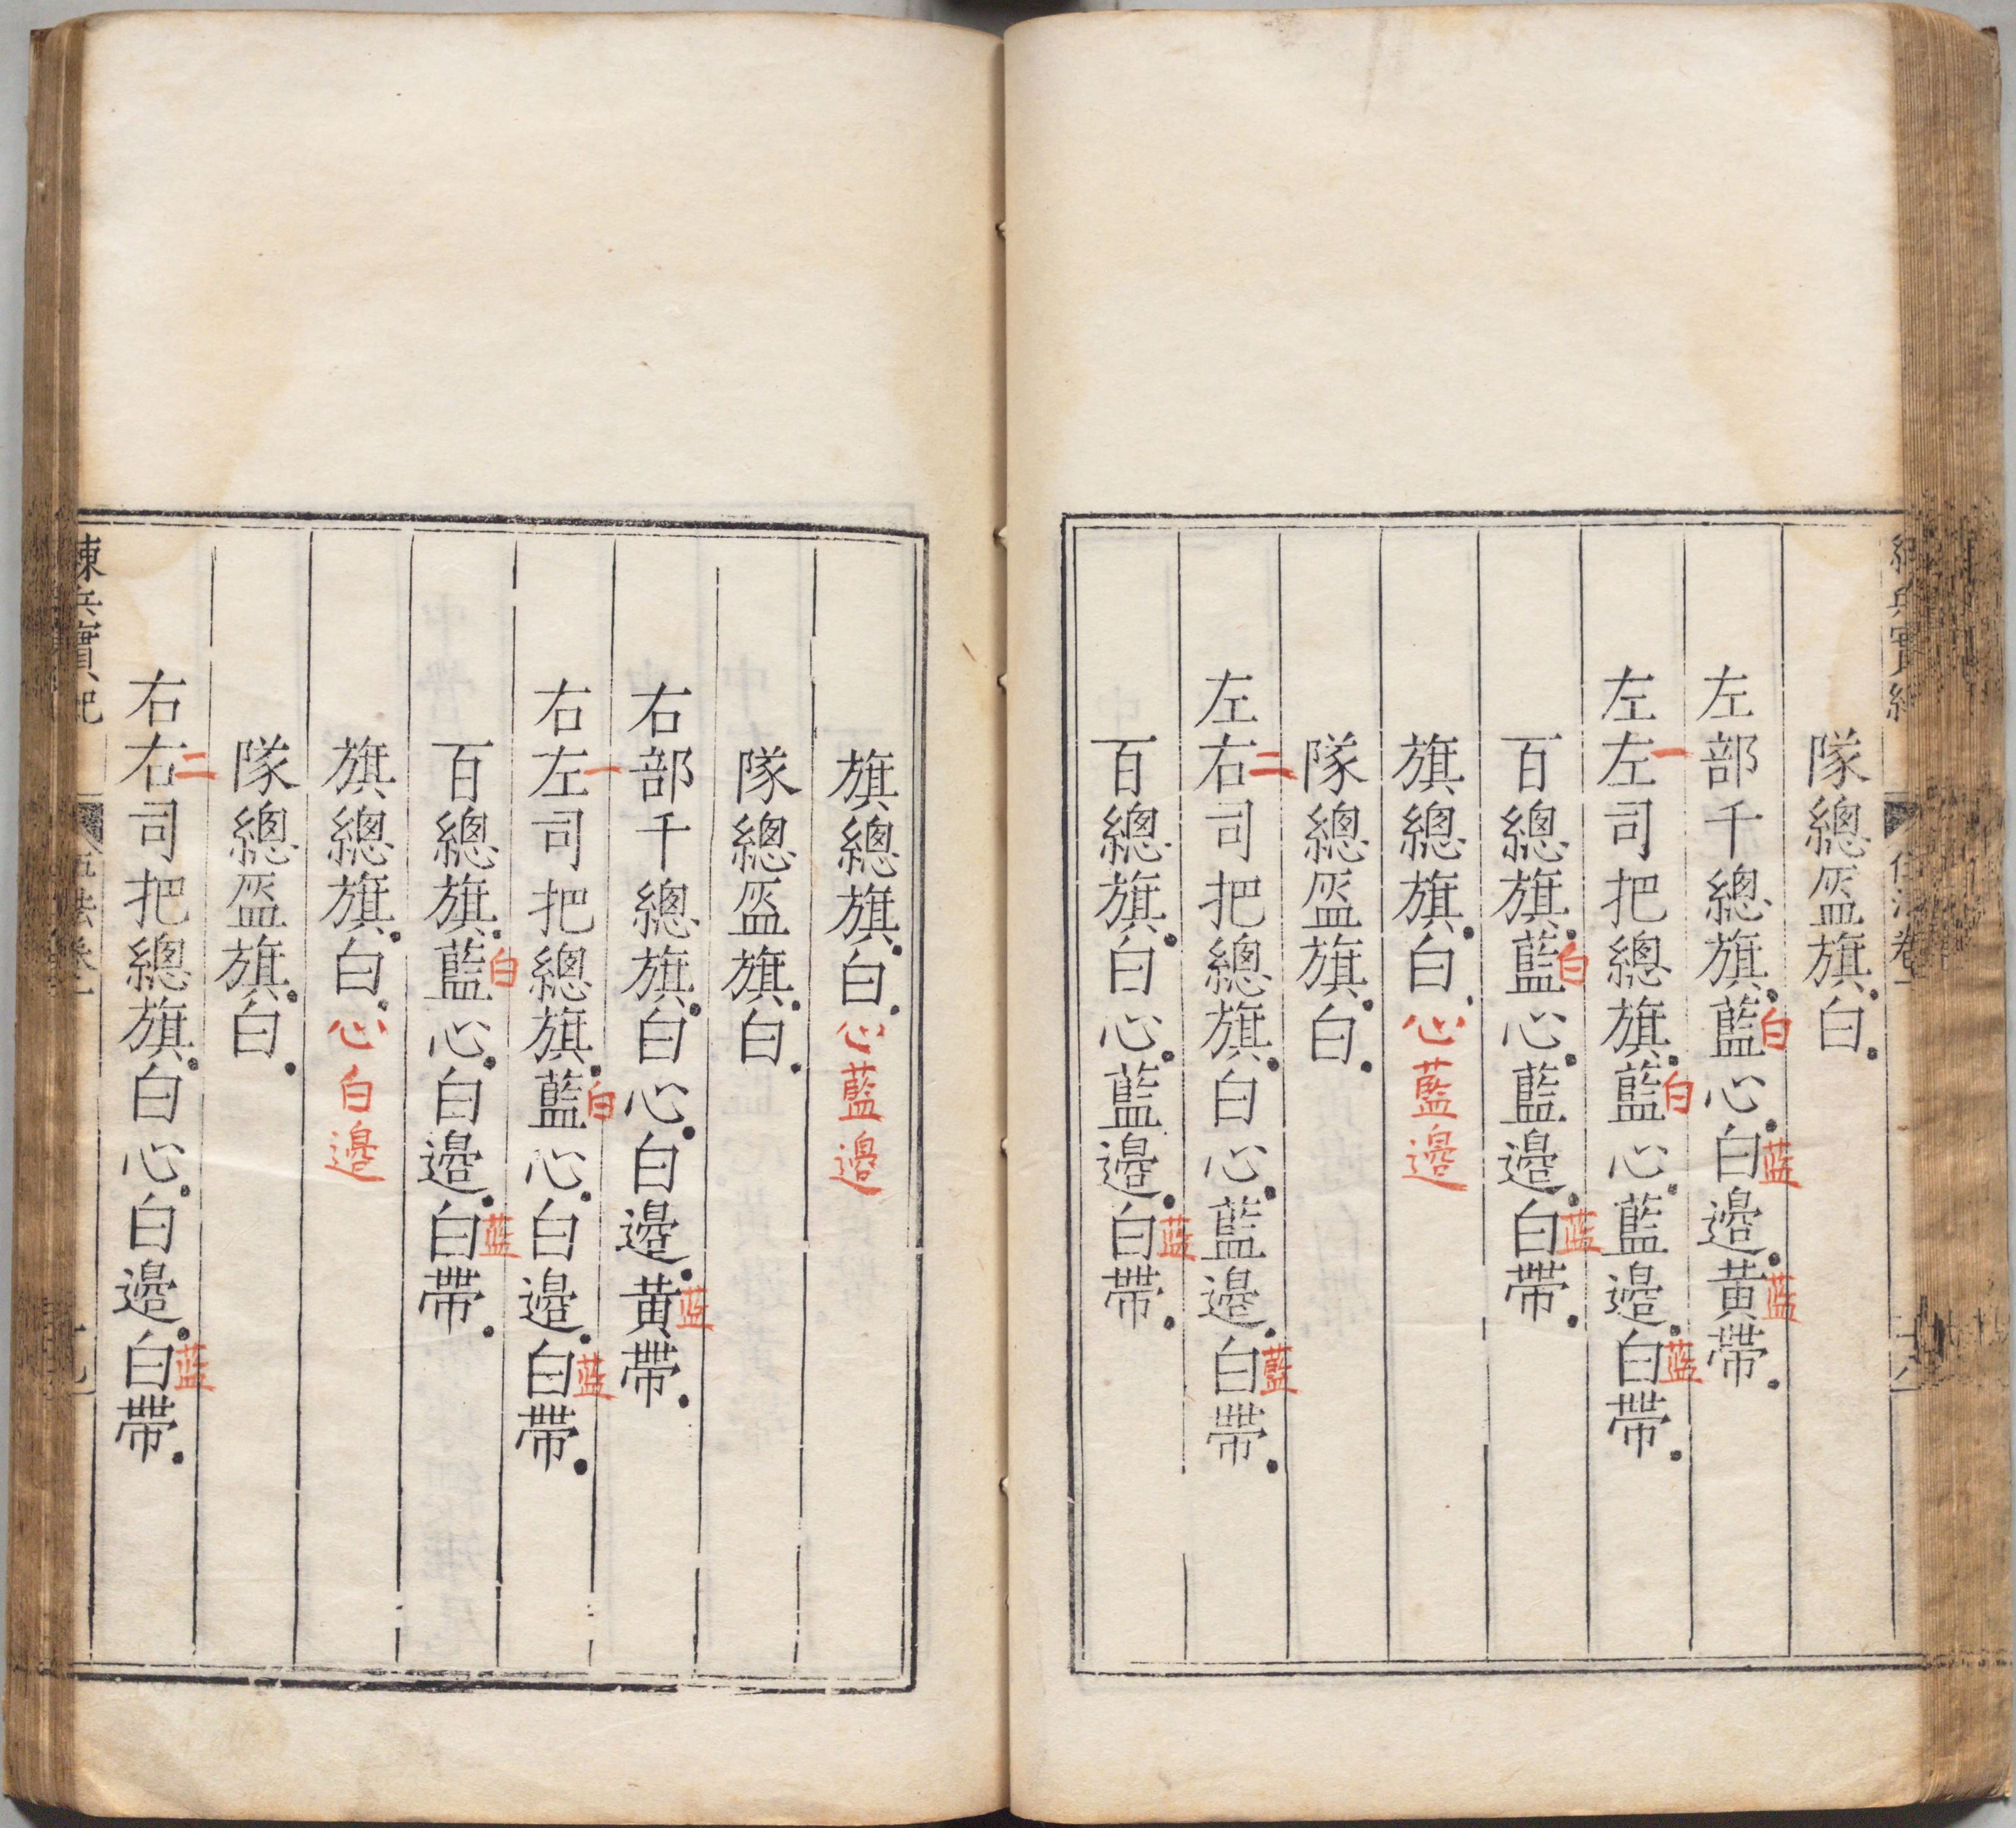 隊總盔旗白
左部千總旗藍白心白藍邊黃藍帶
左左一司把總旗藍白心藍邊白藍帶
百總旗藍白心藍邊白藍帶
旗總旗白心藍邊
隊總盔旗白
左右二司把總旗白心藍邊白藍帶
百總旗白心藍邊白藍帶
旗總旗白心藍邊
隊總盔旗白
右部千總旗白心白邊黃藍帶
右左一司把總旗藍白心白邊白藍帶
百總旗藍白心白邊白藍帶
旗總旗白心白邊
隊總盔旗白
右右二司把總旗白心白邊白藍帶
練兵實紀